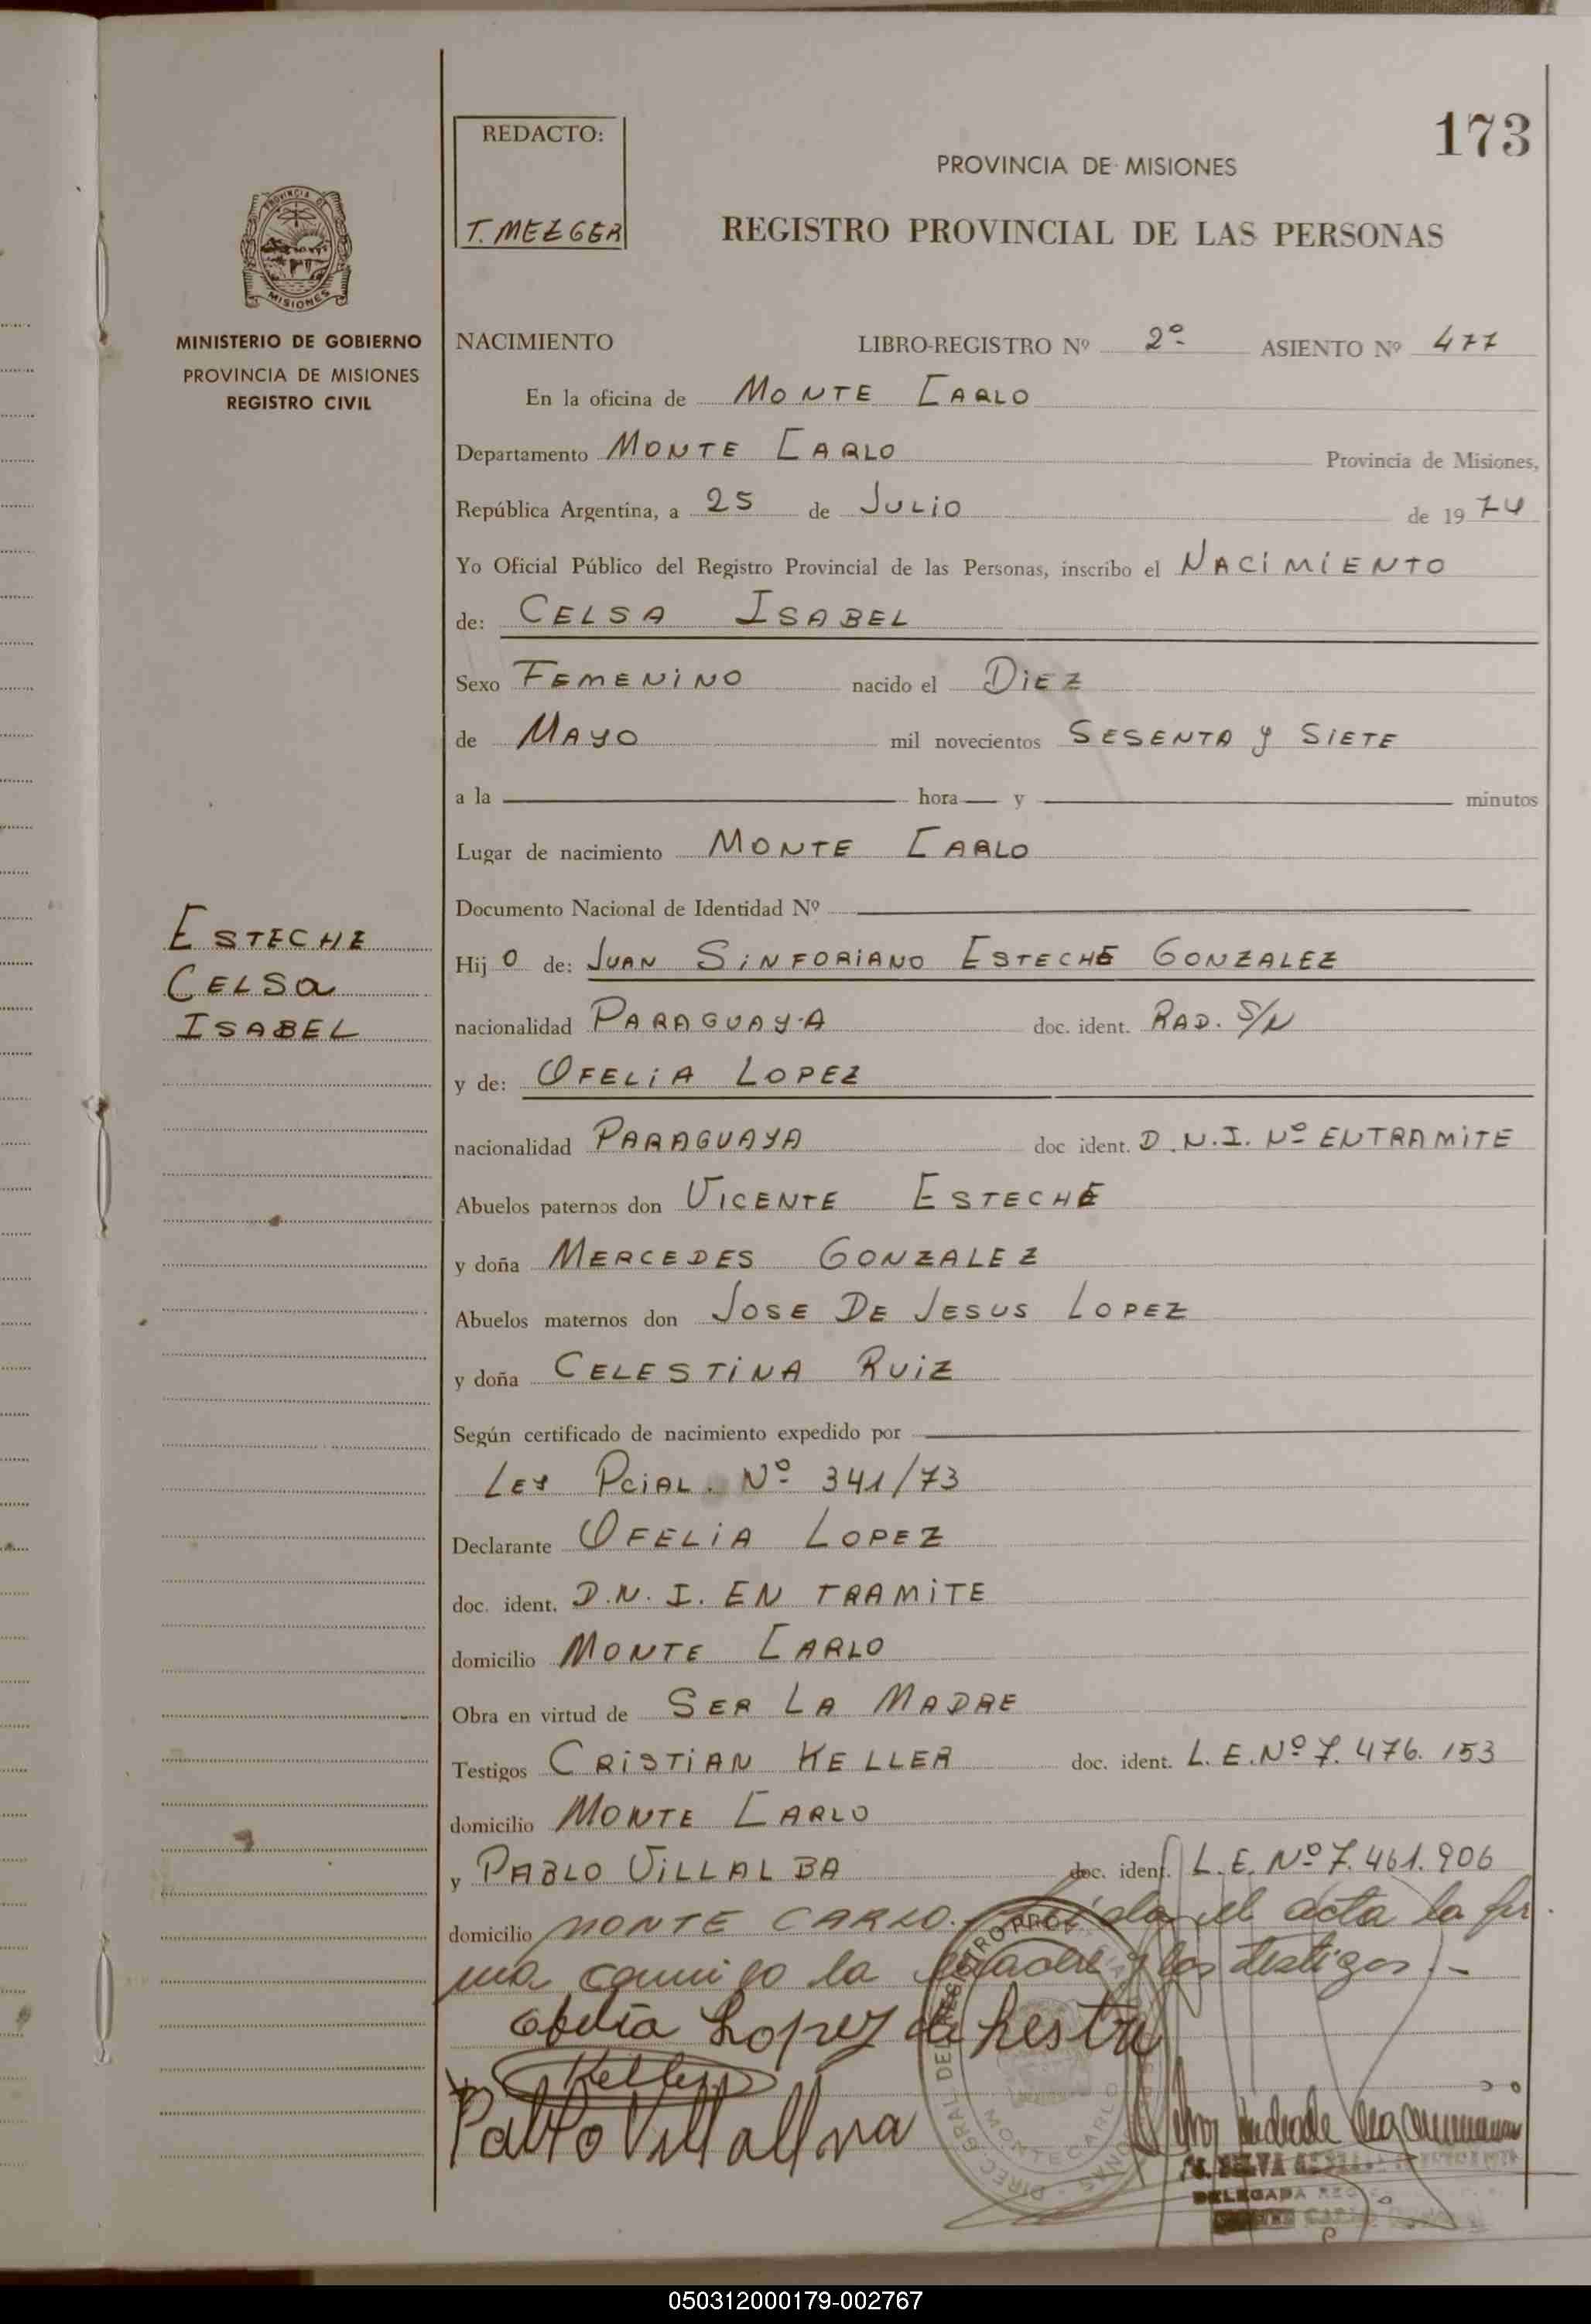 173
REDACTO:
T. MEZGER
PROVINCIA DE MISIONES
REGISTRO PROVINCIAL DE LAS PERSONAS
PROVINCIA DE
MISIONES
MINISTERIO DE GOBIERNO
PROVINCIA DE MISIONES
REGISTRO CIVIL
NACIMIENTO LIBRO-REGISTRO Nº 2º ASIENTO Nº 477
En la oficina de MONTE CARLO
Departamento MONTE CARLO Provincia de Misiones,
República Argentina, a 25 de JULIO de 1974
Yo Oficial Público del Registro Provincial de las Personas, inscribo el NACIMIENTO
de: CELSA ISABEL
Sexo FEMENINO nacido el DIEZ
de MAYO mil novecientos SESENTA y SIETE
a la hora y minutos
Lugar de nacimiento MONTE CARLO
Documento Nacional de Identidad Nº
ESTECHE
CELSA
ISABEL
Hijo de: JUAN SINFORIANO ESTECHE GONZALEZ
nacionalidad PARAGUAYA doc. ident. RAD. S/N
y de: OFELIA LOPEZ
nacionalidad PARAGUAYA doc ident. D.N.I. Nº ENTRAMITE
Abuelos paternos don VICENTE ESTECHE
y doña MERCEDES GONZALEZ
Abuelos maternos don JOSE DE JESUS LOPEZ
y doña CELESTINA RUIZ
Según certificado de nacimiento expedido por
LEY PCIAL. Nº 341/73
Declarante OFELIA LOPEZ
doc. ident. D.N.I. EN TRAMITE
domicilio MONTE CARLO
Obra en virtud de SER LA MADRE
Testigos CRISTIAN KELLER doc. ident. L.E. Nº 7.476.153
domicilio MONTE CARLO
y PABLO VILLALBA doc. ident. L.E. Nº 7.461.906
domicilio MONTE CARLO. Leída el acta la fir
ma conmigo la madre y los testigos.-
Ofelia Lopez de
Keller
Pablo Villalva
MONTECARLO
DELEGADA
050312000179-002767